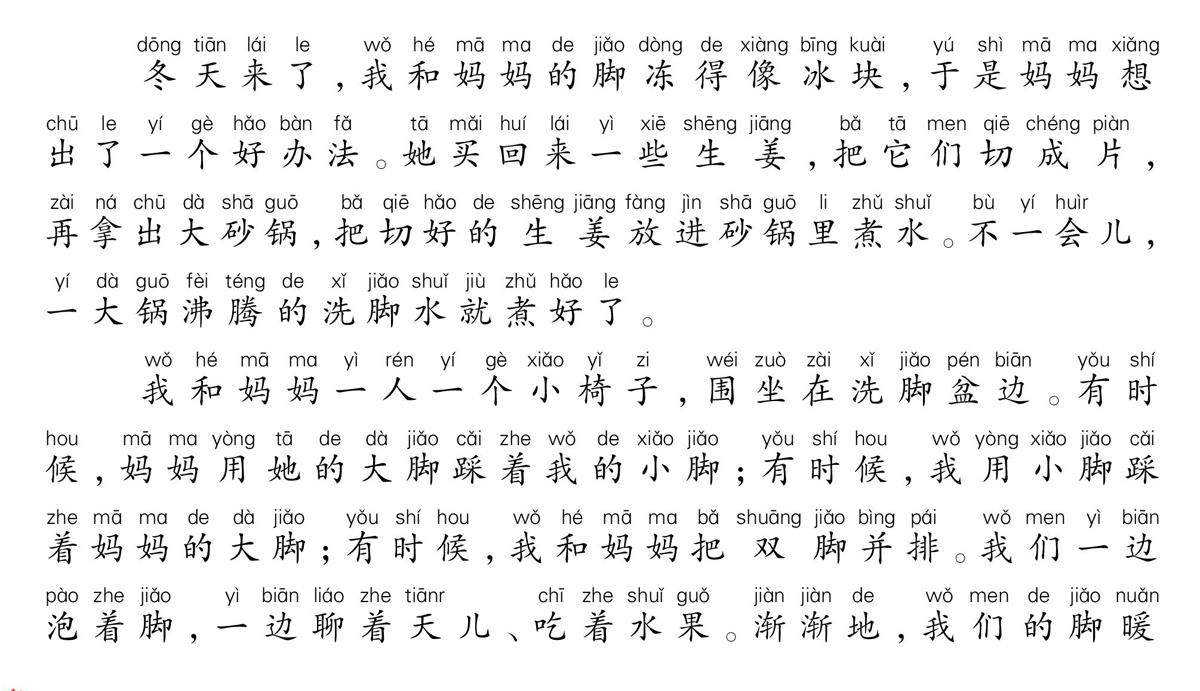 dōng tiān lái le wǒ hé mā ma de jiǎo dòng de xiàng bīng kuài yú shì mā ma xiǎng
冬天来了,我和妈妈的脚冻得像冰块,于是妈妈想
chū le yí gè hǎo bàn fǎ tā mǎi huí lái yì xiē shēng jiāng bǎ tā men qiē chéng piàn
出了一个好办法。她买回来一些生姜,把它们切成片,
zài ná chū dà shā guō bǎ qiē hǎo de shēng jiāng fàng jìn shā guō li zhǔ shuǐ bù yí huìr
再拿出大砂锅,把切好的生姜放进砂锅里煮水。不一会儿,
yí dà guō fèi téng de xǐ jiǎo shuǐ jiù zhǔ hǎo le
一大锅沸腾的洗脚水就煮好了。
wǒ hé mā ma yì rén yí gè xiǎo yǐ zi wéi zuò zài xǐ jiǎo pén biān yǒu shí
我和妈妈一人一个小椅子,围坐在洗脚盆边。有时
hou mā ma yòng tā de dà jiǎo cǎi zhe wǒ de xiǎo jiǎo yǒu shí hou wǒ yòng xiǎo jiǎo cǎi
候,妈妈用她的大脚踩着我的小脚;有时候,我用小脚踩
zhe mā ma de dà jiǎo yǒu shí hou wǒ hé mā ma bǎ shuāng jiǎo bìng pái wǒ men yì biān
着妈妈的大脚;有时候,我和妈妈把双脚并排。我们一边
pào zhe jiǎo yì biān liáo zhe tiānr chī zhe shuǐ guǒ jiàn jiàn de wǒ men de jiǎo nuǎn
泡着脚,一边聊着天儿、吃着水果。渐渐地,我们的脚暖